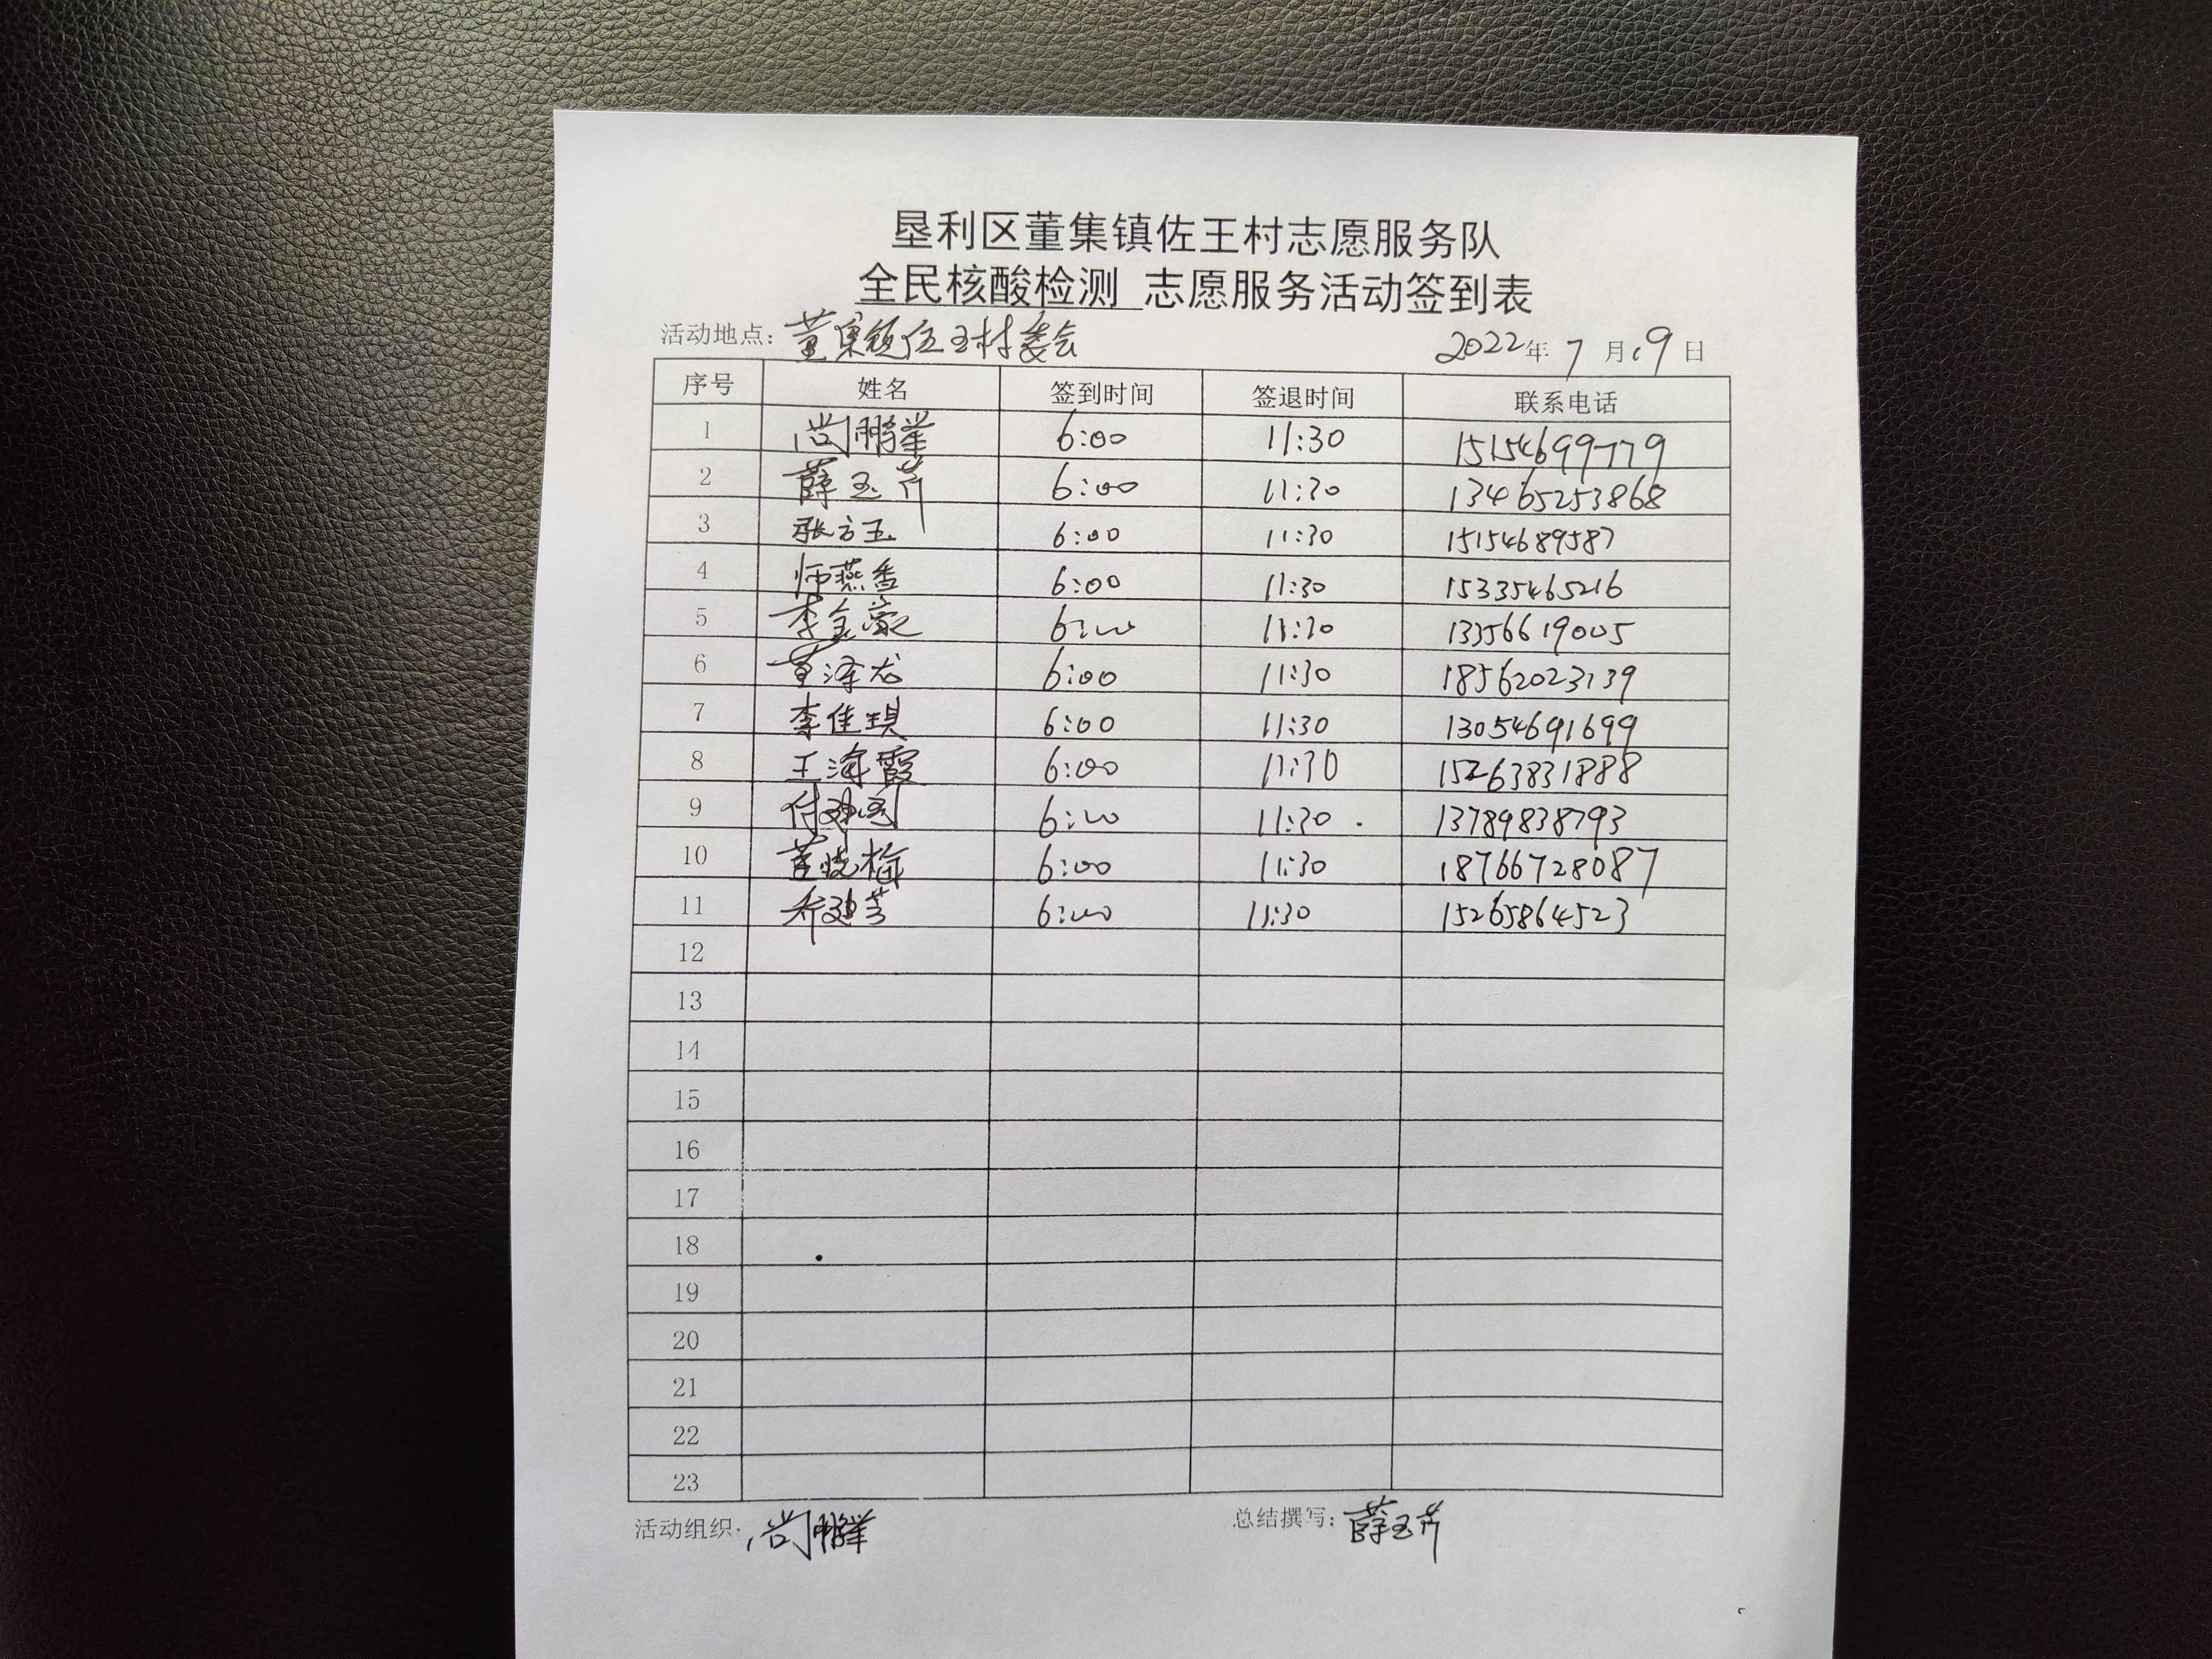 垦利区董集镇佐王村志愿服务队
全民核酸检测 志愿服务活动签到表
活动地点: 董集镇佐王村委会 2022年7月19日
序号 姓名 签到时间 签退时间 联系电话
1 尚鹏 6:00 11:30 15154699779
2 薛玉芹 6:00 11:30 13465253868
3 张方玉 6:00 11:30 15154689587
4 师燕香 6:00 11:30 15335465216
5 李金豪 6:00 11:30 13356619005
6 董泽龙 6:00 11:30 18562023139
7 李佳琪 6:00 11:30 13054691699
8 王海霞 6:00 11:30 15263831888
9 付建国 6:00 11:30 13789838793
10 董晓梅 6:00 11:30 18766728087
11 乔建芳 6:00 11:30 15265864523
12
13
14
15
16
17
18
19
20
21
22
23
活动组织: 尚鹏 总结撰写: 薛玉芹